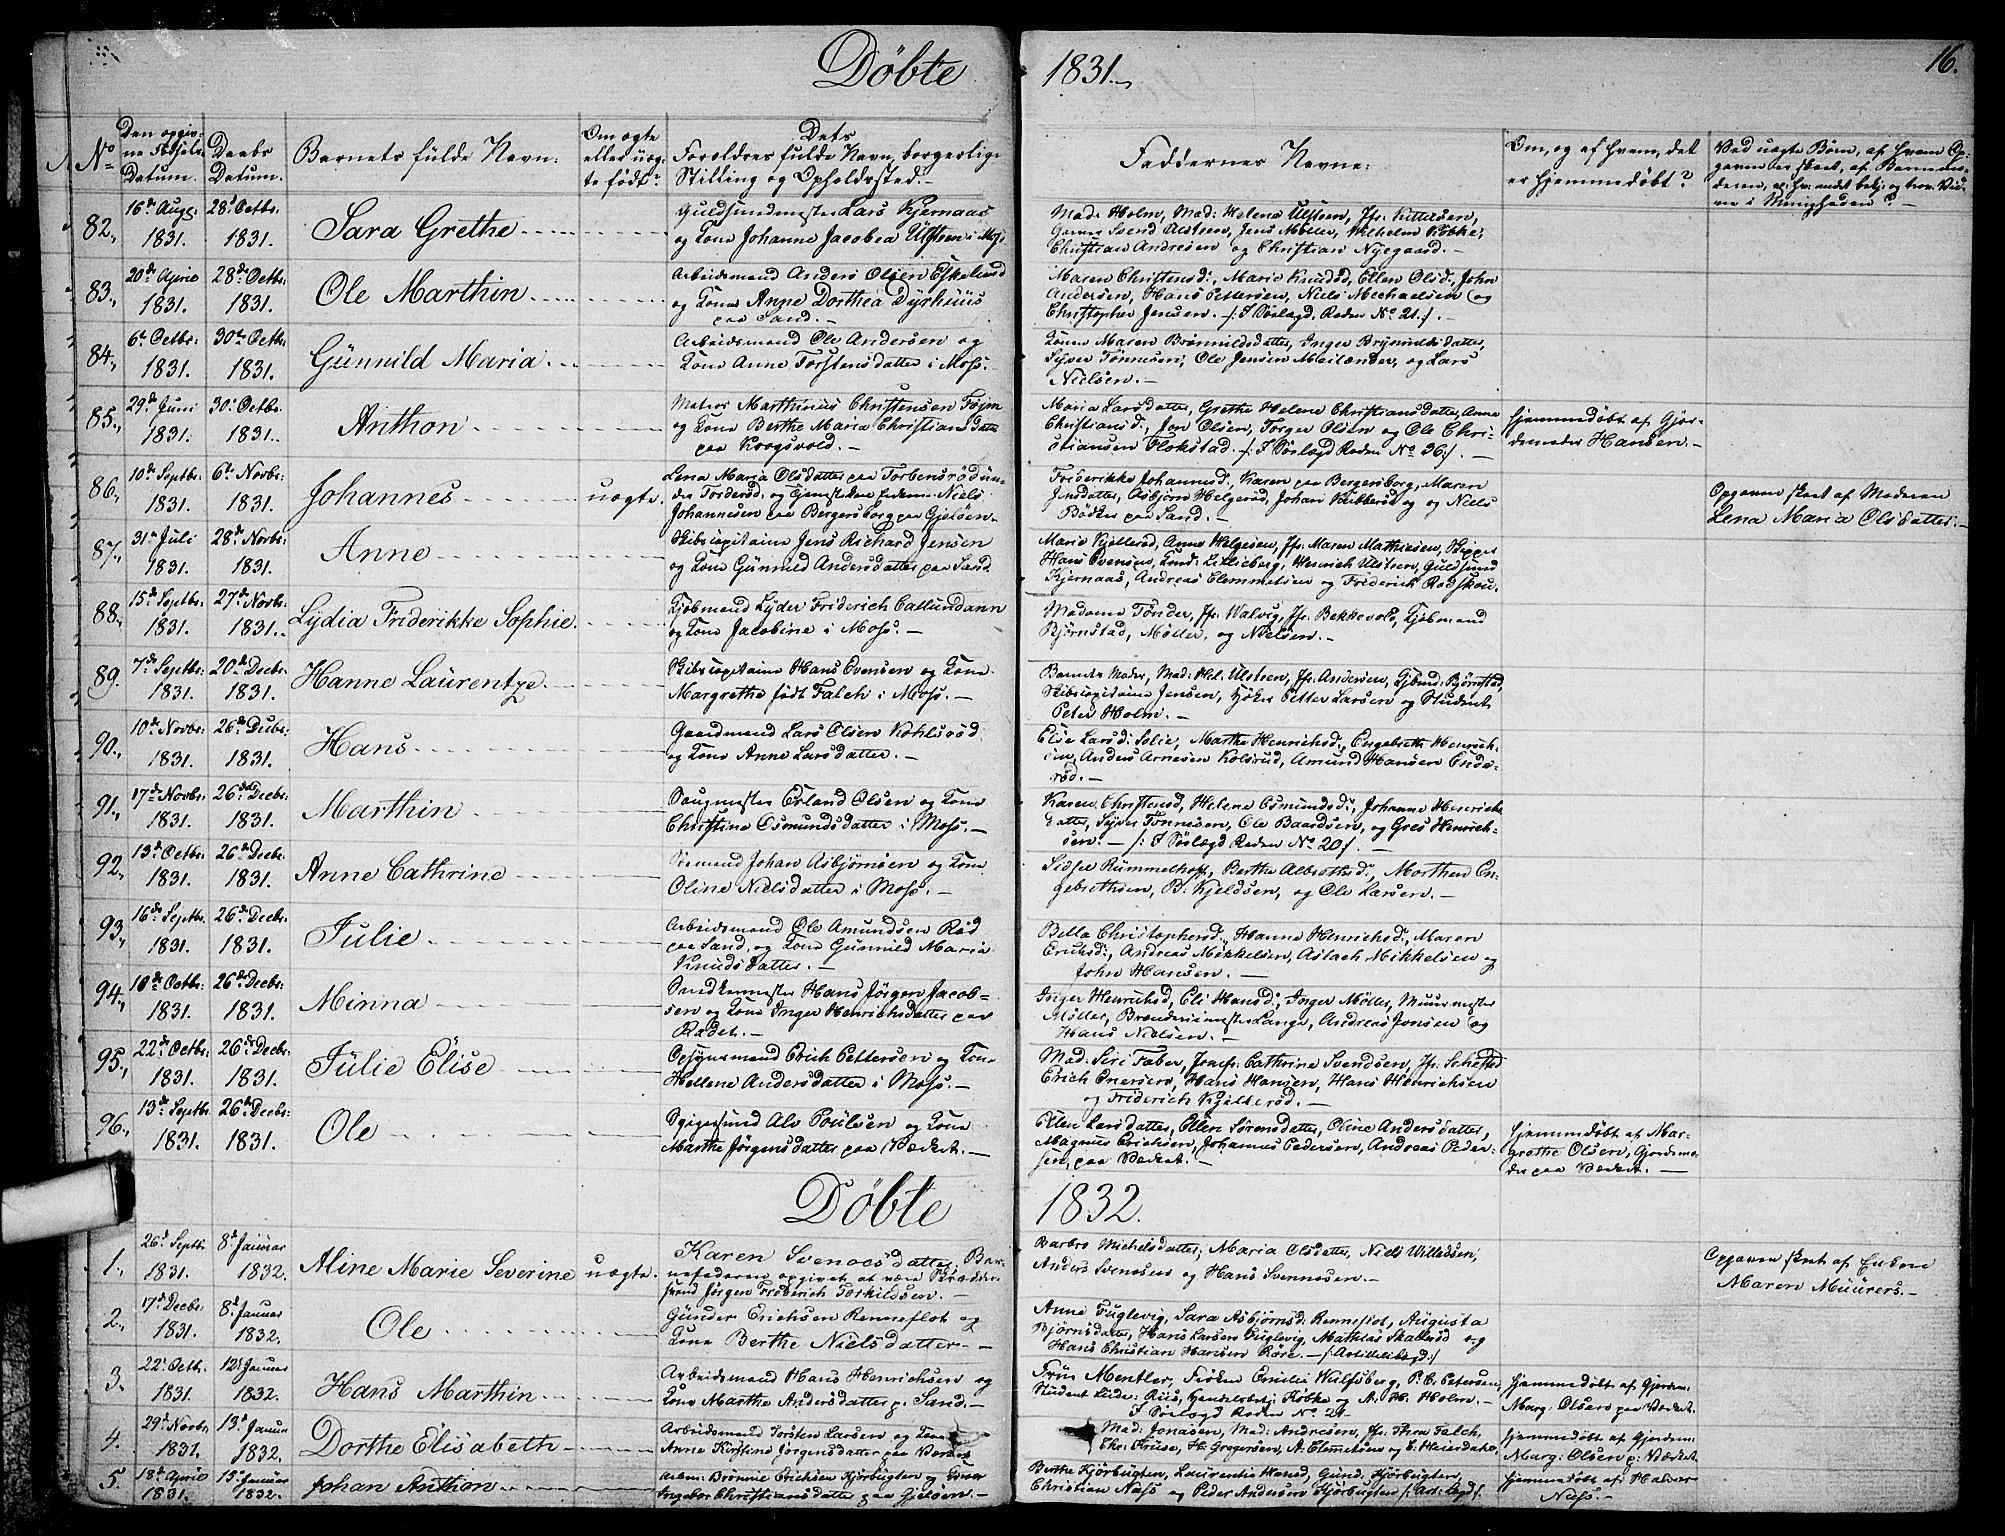 Döbte 1831.
16.
No
Den opgivne Fødsels-Datum.
Daabs Datum.
Barnets fulde Navn.
Om ægte eller uægte født?
Dets Forældres fulde Navn, borgerlige Stilling og Opholdssted.
Faddernes Navne.
Om, og af hvem, det er hjemmedøbt?
82., 16de Aug: 1831. 28de Octbr: 1831. Sara Grethe
Guldsmedmester Lars Kjernaas
og Kone Johanne Jacobea Ulstten i Moss
Mad: Holm, Mad: Helene Ulsteen, Jfr: Kittelsen,
Svend Ulstsen, Jens Møller, Wilhelm Köbke,
Christian Andresen og Christian Nyegaard.
83., 20de April 1831. 28de Octbr: 1831. Ole Marthin
Arbeidsmand Anders Olsen Eskelund
og Kone Anne Dorthea Dyrhuus
paa Sand.
Maren Christensd:, Marie Knudsd, Ellen Olsd:, John
Andersen, Hans Pettersen, Niels Mechaelsen og
Christopher Jensen. /: I Sölægd. Roden No 21 :/
84., 6te Octbr: 1831. 30te Octbr: 1831. Günnild Maria
Arbeidsmand Ole Andersen og
Kone Anne Torstensdatter i Moss.
Kone Maren Brønnildsdatter, Inger Brynnildsdatter,
Syver Tönnesen, Ole Jensen Meilænder, og Lars
Nielsen.
85., 29de Juni 1831. 30te Octbr: 1831. Anthon
Matros Marthinius Christensen Fojn
og Kone Berthe Maria Christiansdatter
paa Krogsvold.
Maria Larsdatter, Grethe Helene Christiansdatter, Anne
Christiansd:, Jon Olsen, Torger Olsen og Ole Chri-
stiansen Flokstad. /: I Sölægd Roden No 36 :/
hjemmedöbt af Gjor-
demoder Hansen.
86., 10de Septbr: 1831. 6te Novbr: 1831. Johannes uægte.
Lena Maria Olsdatter paa Torbensröd un-
der Torderöd, og Niels
Johannesen paa Bergersborg paa Gjelöen
Frederikke Johannesd:, Karen paa Bergersborg, Maren
Jensdatter, Asbjörn Helgeröd, Johan Kubberöd og Niels
Bödker paa Sand.
Opgaven skeet af Moderen
Lena Maria Olsdatter.
87., 31te Juli 1831. 28de Novbr: 1831. Anne
Skibscapitaine Jens Richard Jensen
og Kone Günnild Andersdatter paa Sand
Marie Kjelleröd, Anne Helgesen, Jfr: Maren Mathiesen, Skipper
Hans Evensen, Lillieberg, Henrich Ulsteen, Guldsmed
Kjernaas, Andreas Clemmetsen og Frederich Rodskou.
88., 15de Septbr: 1831. 27de Novbr: 1831. Lydia Friderikke Sophie.
Kjöbmand Lyder Friderich Catlundann
og Kone Jacobine i Moss.
Madame Tönder, Jfr: Walvig, Jfr: Bekkevold, Kjöbmand
Björnstad, Möller, og Nielsen.
89. 7de Septbr: 1831. 20de Decbr: 1831. Hanne Laurentze
Skibscapitaine Hans Evensen og Kone
Margrethe födt Falch i Moss.
Barnets Moder, Mad: Hel. Ulsteen, Jfr: Andersen, Kjbmd: Björnstad,
Skibscapitaine Jensen, Petter Larsen og Student
Peter Holm.
90., 10de Novbr: 1831. 26de Decbr: 1831. Hans
Gaardmand Lars Olsen Kohlsröd
og Kone Anne Larsdatter.
Else Larsd: Solie, Marthe Henrichsd:, Engebreth Henrich-
sen, Anders Arnesen Kolsrud, Amund Hansen Ende-
röd.
91., 17de Novbr: 1831. 26de Decbr: 1831. Marthin
Saugmester Erland Olsen og Kone
Christine Osmundsdatter i Moss.
Karen Christensd, Helene Osmundsd:, Johanne Henrichs-
datter, Syver Tönnesen, Ole Baardsen, og Gres Henrich-
sen. /: I Sölægd Roden No 20 :/
92., 13de Octbr: 1831. 26de Decbr: 1831. Anne Cathrine
Sömand Johan Asbjörnsen og Kone
Oline Nielsdatter i Moss.
Sidse Rümmelhoff, Berthe Albrethsd:, Morthen En-
gebrethsen, B: Kjeldsen, og Ole Larsen.
93., 16de Septbr. 1831. 26de Decbr: 1831. Julie
Arbeidsmand Ole Amundsen Röd
paa Sand, og Kone Günnild Maria
Knudsdatter.
Bella Christophersd:, Hanne Henrichsd:, Maren
Erichsd:, Andreas Mikkelsen, Aslach Mikkelsen og
John Hansen.
94., 10de Octbr: 1831. 26de Decbr: 1831. Minna
Snedkermester Hans Jörgen Jacob-
sen og Kone Inger Henrichsdatter paa
Rödet.
Inger Henrichsd, Eli Hansd:, Inger Möller, Muurmester
Möller, Brænderimester Lange, Andreas Jonsen og
Hans Nielsen.
95., 22de Octbr: 1831. 26de Decbr: 1831. Julie Elise
Opsynsmand Erich Pettersen og Kone
Hellene Andersdatter i Moss.
Mad: Siri Faber, Jomfr: Cathrine Svendsen, Jfr: Schefted
Erich Enersen, Hans Hansen, Hans Henrichsen
og Friderich Kjelleröd.
96., 13de Septbr: 1831. 26de Decbr: 1831. Ole
Spigersmed Alv Poulsen og Kone
Marthe Jörgensdatter paa Værket.
Ellen Larsdatter, Ellen Sörensdatter, Oline Andersdatter,
Magnus Erichsen, Johannes Pedersen, Andreas Peder-
sen, paa Værket.
hjemmedöbt af Mar-
grethe Olsen, Gjordemo-
der paa Værket.
Döbte 1832.
1., 26de Septbr 1831. 8de Januar 1832. Aline Marie Severine uægte.
Karen Svenoesdatter, Bar-
nefaderen opgivet at være
Jörgen Frederich Torkildsen.
Barbro Michelsdatter, Maria Olsdatter, Niels Willedsen,
Anders Svenosen og Hans Svennosen.
Opgaven skeet af Enken
Maren Müürers.
2., 17de Decbr: 1831. 8de Januar 1832. Ole
Gunder Erichsen Renneflot og
Kone Berthe Nielsdatter.
Anne Fuglevig, Sara Asbjörnsd: Renneflot, Augusta
Björnsdatter, Hans Larsen Fuglevig, Mathias Skalleröd og
Hans Christian Hansen Röre.
3. 22de Octbr: 1831. 12te Januar 1832. Hans Marthin
Arbeidsmand Hans Henrichsen og
Kone Marthe Andersdatter p: Sand.
Früe Mentler, Fröken Emilie Wulfsberg, P. C. Petersen,
Student Riis, Köbke og A. H. Holm.
I Sölægd Roden No 21
hjemmedöbt af Gjordem:
Marg: Olsen paa Værket.
4. 29de Novbr: 1831. 13de Januar 1832. Dorthe Elisabeth
Arbeidsmand Torsten Larsen og Kone
Anne Kirstine Jörgensdatter paa Værket
Mad: Jonasen, Mad: Andresen, Jfr: Thea Falch,
Chr: Friise, H: Gregersen, A: Clemetsen og
hjemmedöbt af Gjordem:
Marg: Olsen p: Værket.
5. 18de April 1831. 15de Januar 1832. Johan Anthon
Arbm: Brönnie Erichsen Kjörbugten og Kone
Ingebor Christiansdatter paa Gjelöen.
Berthe Kjörbugten, Laurentia Hansd, Gund: Kjörbugten,
Christian Næss og Peder Andersen Kjörbugten
hjemmedöbt af Halvor
Næss.